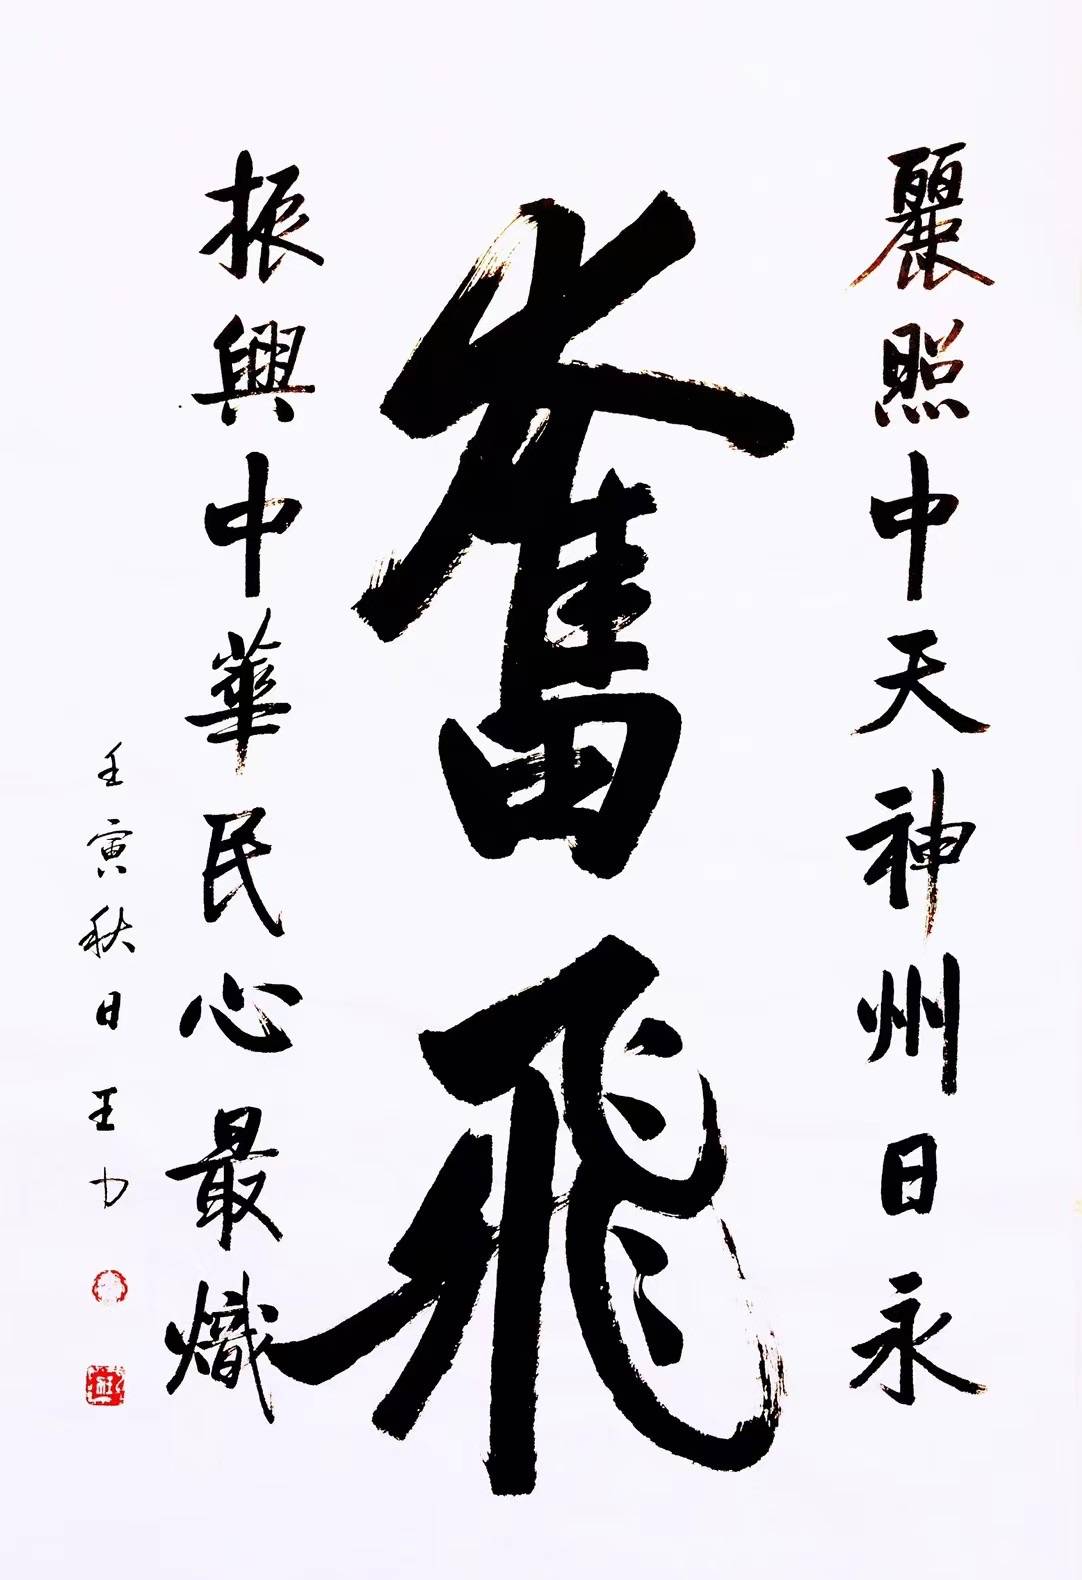 麗照中天神州日永
奮飛
振興中華民心最熾
壬寅秋日王力